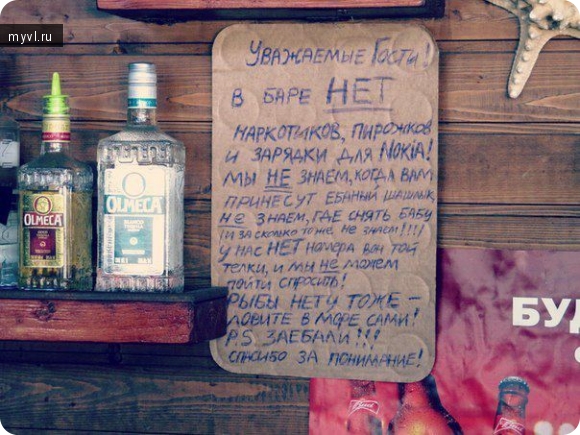 myvl.ru
Уважаемые Гости!
в баре НЕТ
наркотиков, пирожков
и зарядки для Nokia!
мы не знаем, когда вам
принесут ебаный шашлык,
не знаем, где снять бабу
(и за сколько тоже не знаем!!!!)
у нас НЕТ номера вон той
телки, и мы не можем
пойти спросить!
Рыбы нету тоже –
ловите в море сами!
P.S. заебали!!!
спасибо за понимание!
OLMECA
OLMECA
БУД